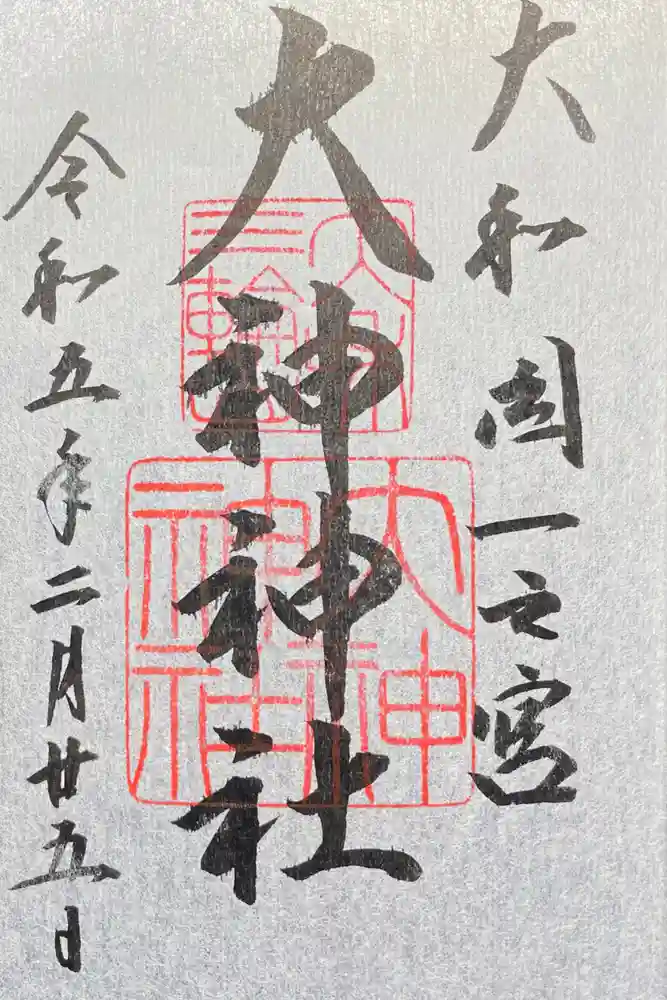 大和国一之宮
大神神社
大神神社
令和五年二月廿五日